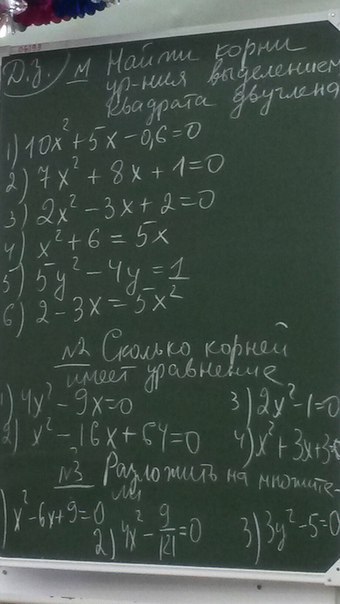 Д.З. №1 Найти корни
ур-ния выделением
квадрата двучлена
1) 10x² + 5x - 0,6 = 0
2) 7x² + 8x + 1 = 0
3) 2x² - 3x + 2 = 0
4) x² + 6 = 5x
5) 5y² - 4y = 1
6) 2 - 3x = 5x²
№2 Сколько корней
имеет уравнение
1) 4x² - 9x = 0
3) 2x² - 1 = 0
2) x² - 16x + 64 = 0
4) x² + 3x + 3 = 0
№3 Разложить на множите-
ли
) x² - 6x + 9 = 0
2) 4x² - 9/121 = 0
3) 3y² - 5 = 0